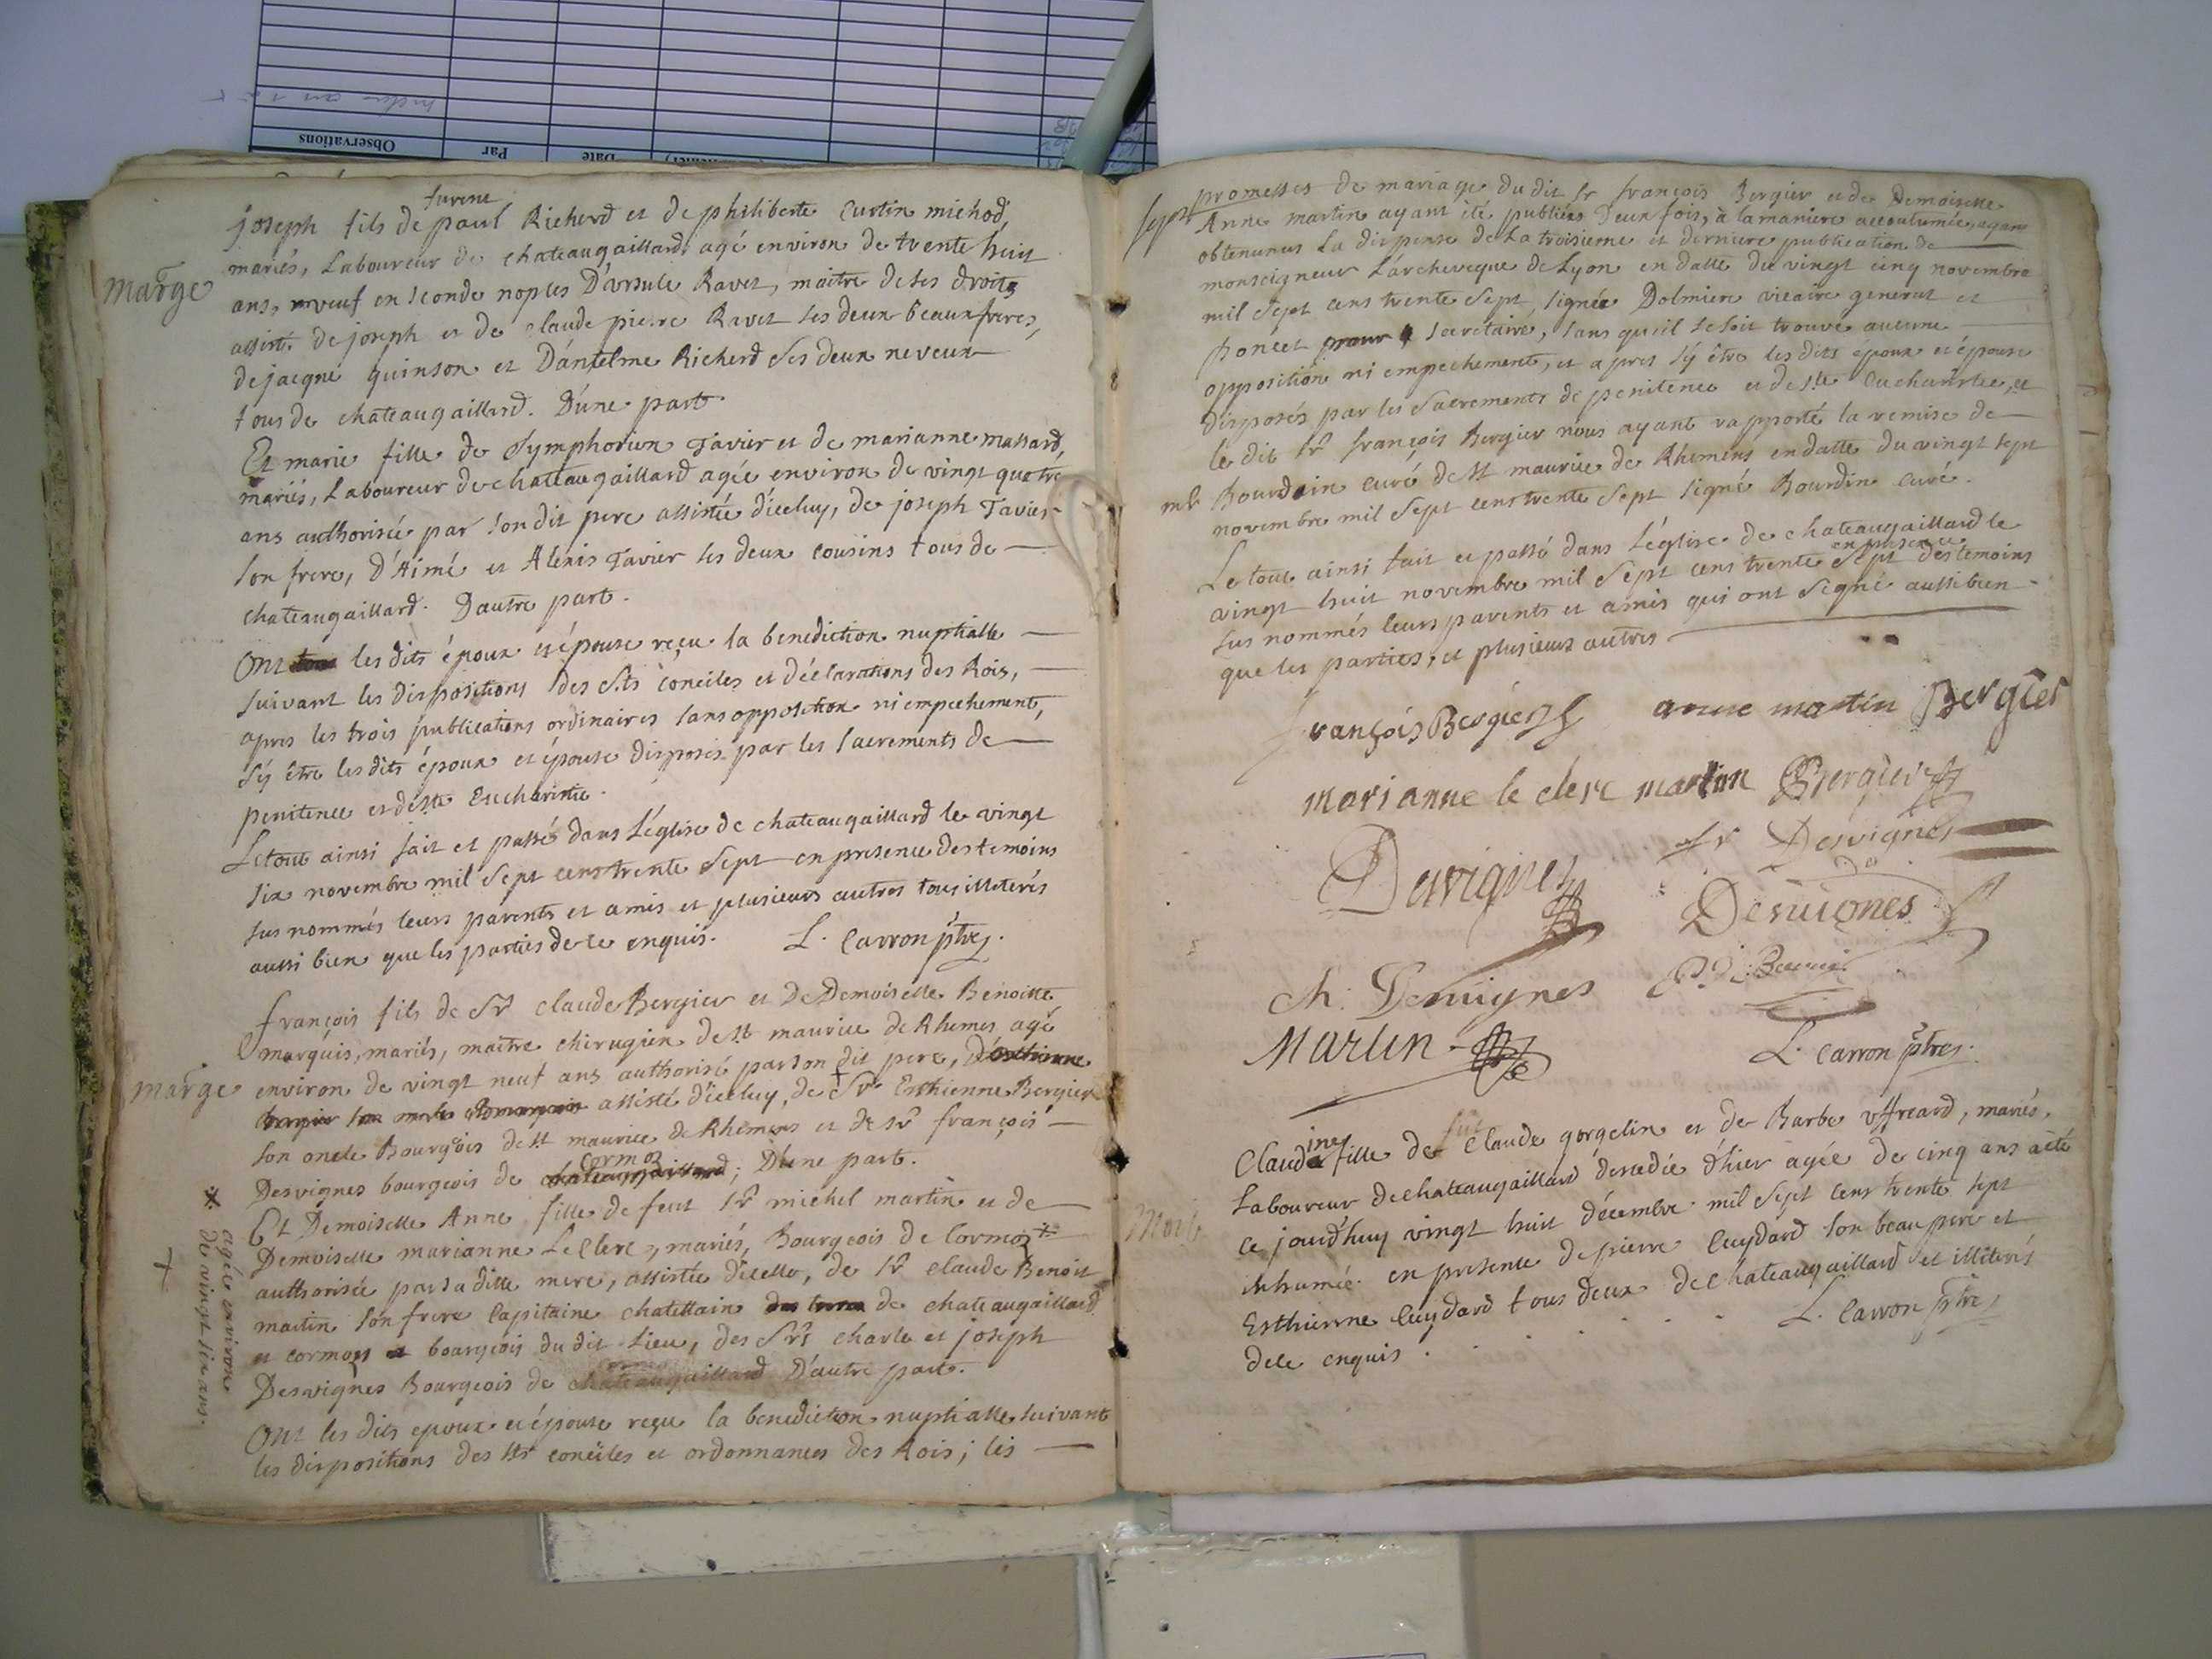 Observations
Par
Date
furent
joseph fils de paul Richerd et de philiberte Curtin michod,
mariés, Laboureur de chateaugaillard, agé environ de trente huit
marge
ans, veuf en seconde nopces D'ursule Ravet, maitre de ses droits
assisté de joseph et de claude pierre Ravet ses deux beaux freres,
de jacque quinson et D'antelme Richerd ses deux neveux
tous de chateaugaillard. D'une part.
Et marie fille de Symphorien Tavier et de marianne massard,
mariés, Laboureur de chateaugaillard agée environ de vingt quatre
ans authorisée par son dit pere assistée d'iceluy, de joseph Tavier
son frere, D'Aimé et Alexis Tavier ses deux cousins tous de
chateaugaillard. D'autre part.
Ont les dits époux et épouse reçu la benediction nuptialle
suivant les dispositions des Sts conciles et déclarations des Rois,
apres les trois publications ordinaires sans opposition ni empechement,
s'y être les dits époux et épouse disposés par les sacrements de
penitence et de ste Eucharistie.
Le tout ainsi fait et passé dans L'église de chateaugaillard le vingt
six novembre mil sept cens trente sept en presence des temoins
sus nommés leurs parents et amis et plusieurs autres tous illiterés
aussi bien que les parties de ce enquis. L. Carron ptre.
françois fils de Sr claude Bergier et de Demoiselle Benoitte
marquis, mariés, maitre chirugien de st maurice de Rhemes agé
marge
environ de vingt neuf ans authorisé par son dit pere, D'esthienne
assisté d'iceluy, de Sr Esthienne Bergier
son oncle Bourgois de st maurice de Rhemens et de sr françois
cormoz
Desvignes bourgeois de chateaugaillard; D'une part.
Et Demoiselle Anne fille de feut Sr michel martin et de
Demoiselle marianne Le Clerc, mariés, Bourgeois de Cormoz *
authorisée par sa ditte mere, assistée d'icelle, de Sr claude Benoit
martin son frere Capitaine chatellain de chateaugaillard
et cormoz et bourgeois du dit Lieu, des Srs charle et joseph
cormoz
Desvignes Bourgeois de chateaugaillard D'autre part.
* agée environ
de vingt six ans.
Ont les dits epoux et épouse reçu la benediction nuptialle suivant
les dispositions des sts conciles et ordonnances des Rois; les
promesses de mariage du dit sr françois Bergier et de Demoiselle
Anne martin ayant été publiées Deux fois, à la maniere accoutumée, ayant
obtenunus La dispense de La troisieme et derniere publication de
monseigneur L'archeveque de Lyon en datte du vingt cinq novembre
mil sept cens trente sept, signée Dolmiere vicaire general et
Poncet secretaire, sans qu'il se soit trouvé aucune
opposition ni empechement, et apres s'y être les dits époux et épouse
disposés par les sacrements de penitence et de ste Eucharistie, et
le dit Sr françois Bergier nous ayant rapporté la remise de
mr Bourdin curé de st maurice de Rhemens en datte du vingt sept
novembre mil sept cens trente sept signé Bourdin curé.
Le tout ainsi fait et passé dans L'église de chateaugaillard le
en presence
vingt huit novembre mil sept cens trente sept des temoins
sus nommés leurs parents et amis qui ont signé aussi bien
que les parties, et plusieurs autres
françois Bergier anne martin Bergier
marianne le clerc martin Bergier
Desvignes
Desvignes
Desvignes
ch. Desvignes
Martin
L. Carron ptre.
Claudine fille de Claude gorgelin et de Barbe uffreard, mariés,
Laboureur de chateaugaillard descedée d'hier agée de cinq ans a été
mort
ce jourd'huy vingt huit décembre mil sept cens trente sept
inhumée en presence de pierre Cuydard son beau pere et
Esthienne Cuydard tous deux de chateaugaillard et illiterés
de ce enquis. L. Carron ptre